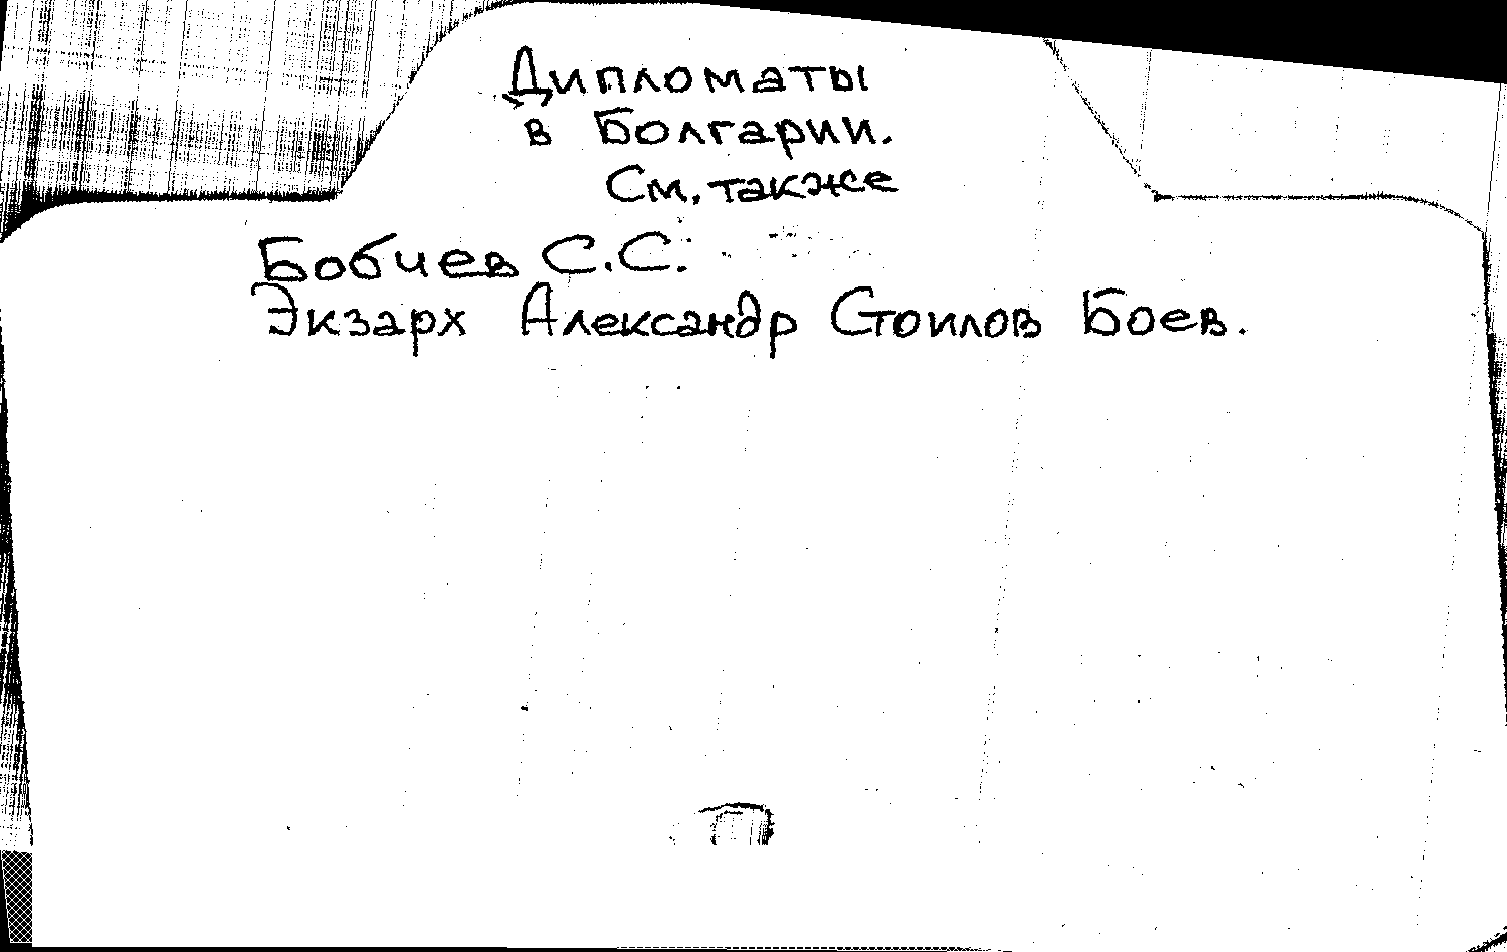 Дипломаты
в Болгарии.
См. также
Бобчев С.С.
Экзарх Александр Стоилов Боев.